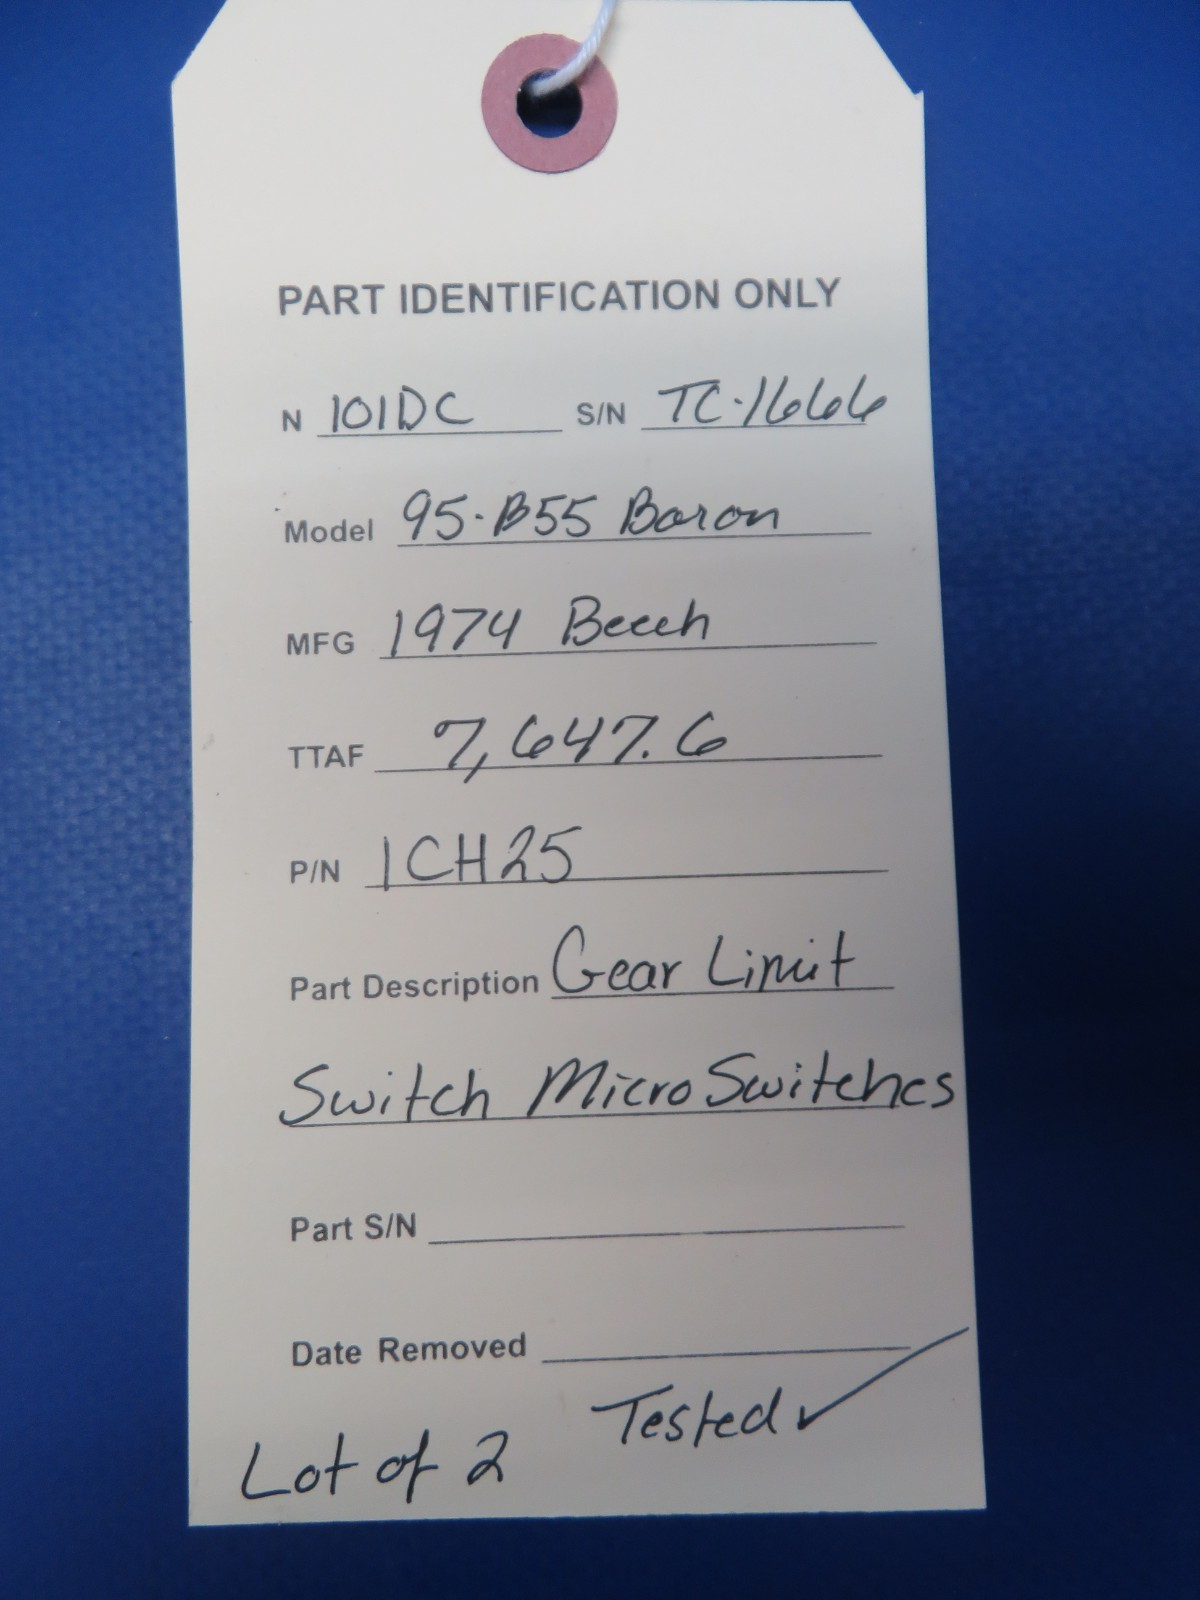 PART IDENTIFICATION ONLY
N 101DC S/N TC-1666
Model 95-B55 Baron
MFG 1974 Beech
TTAF 7,647.6
P/N 1CH25
Part Description Gear Limit
Switch Micro Switches
Part S/N
Date Removed
Tested ✓
Lot of 2